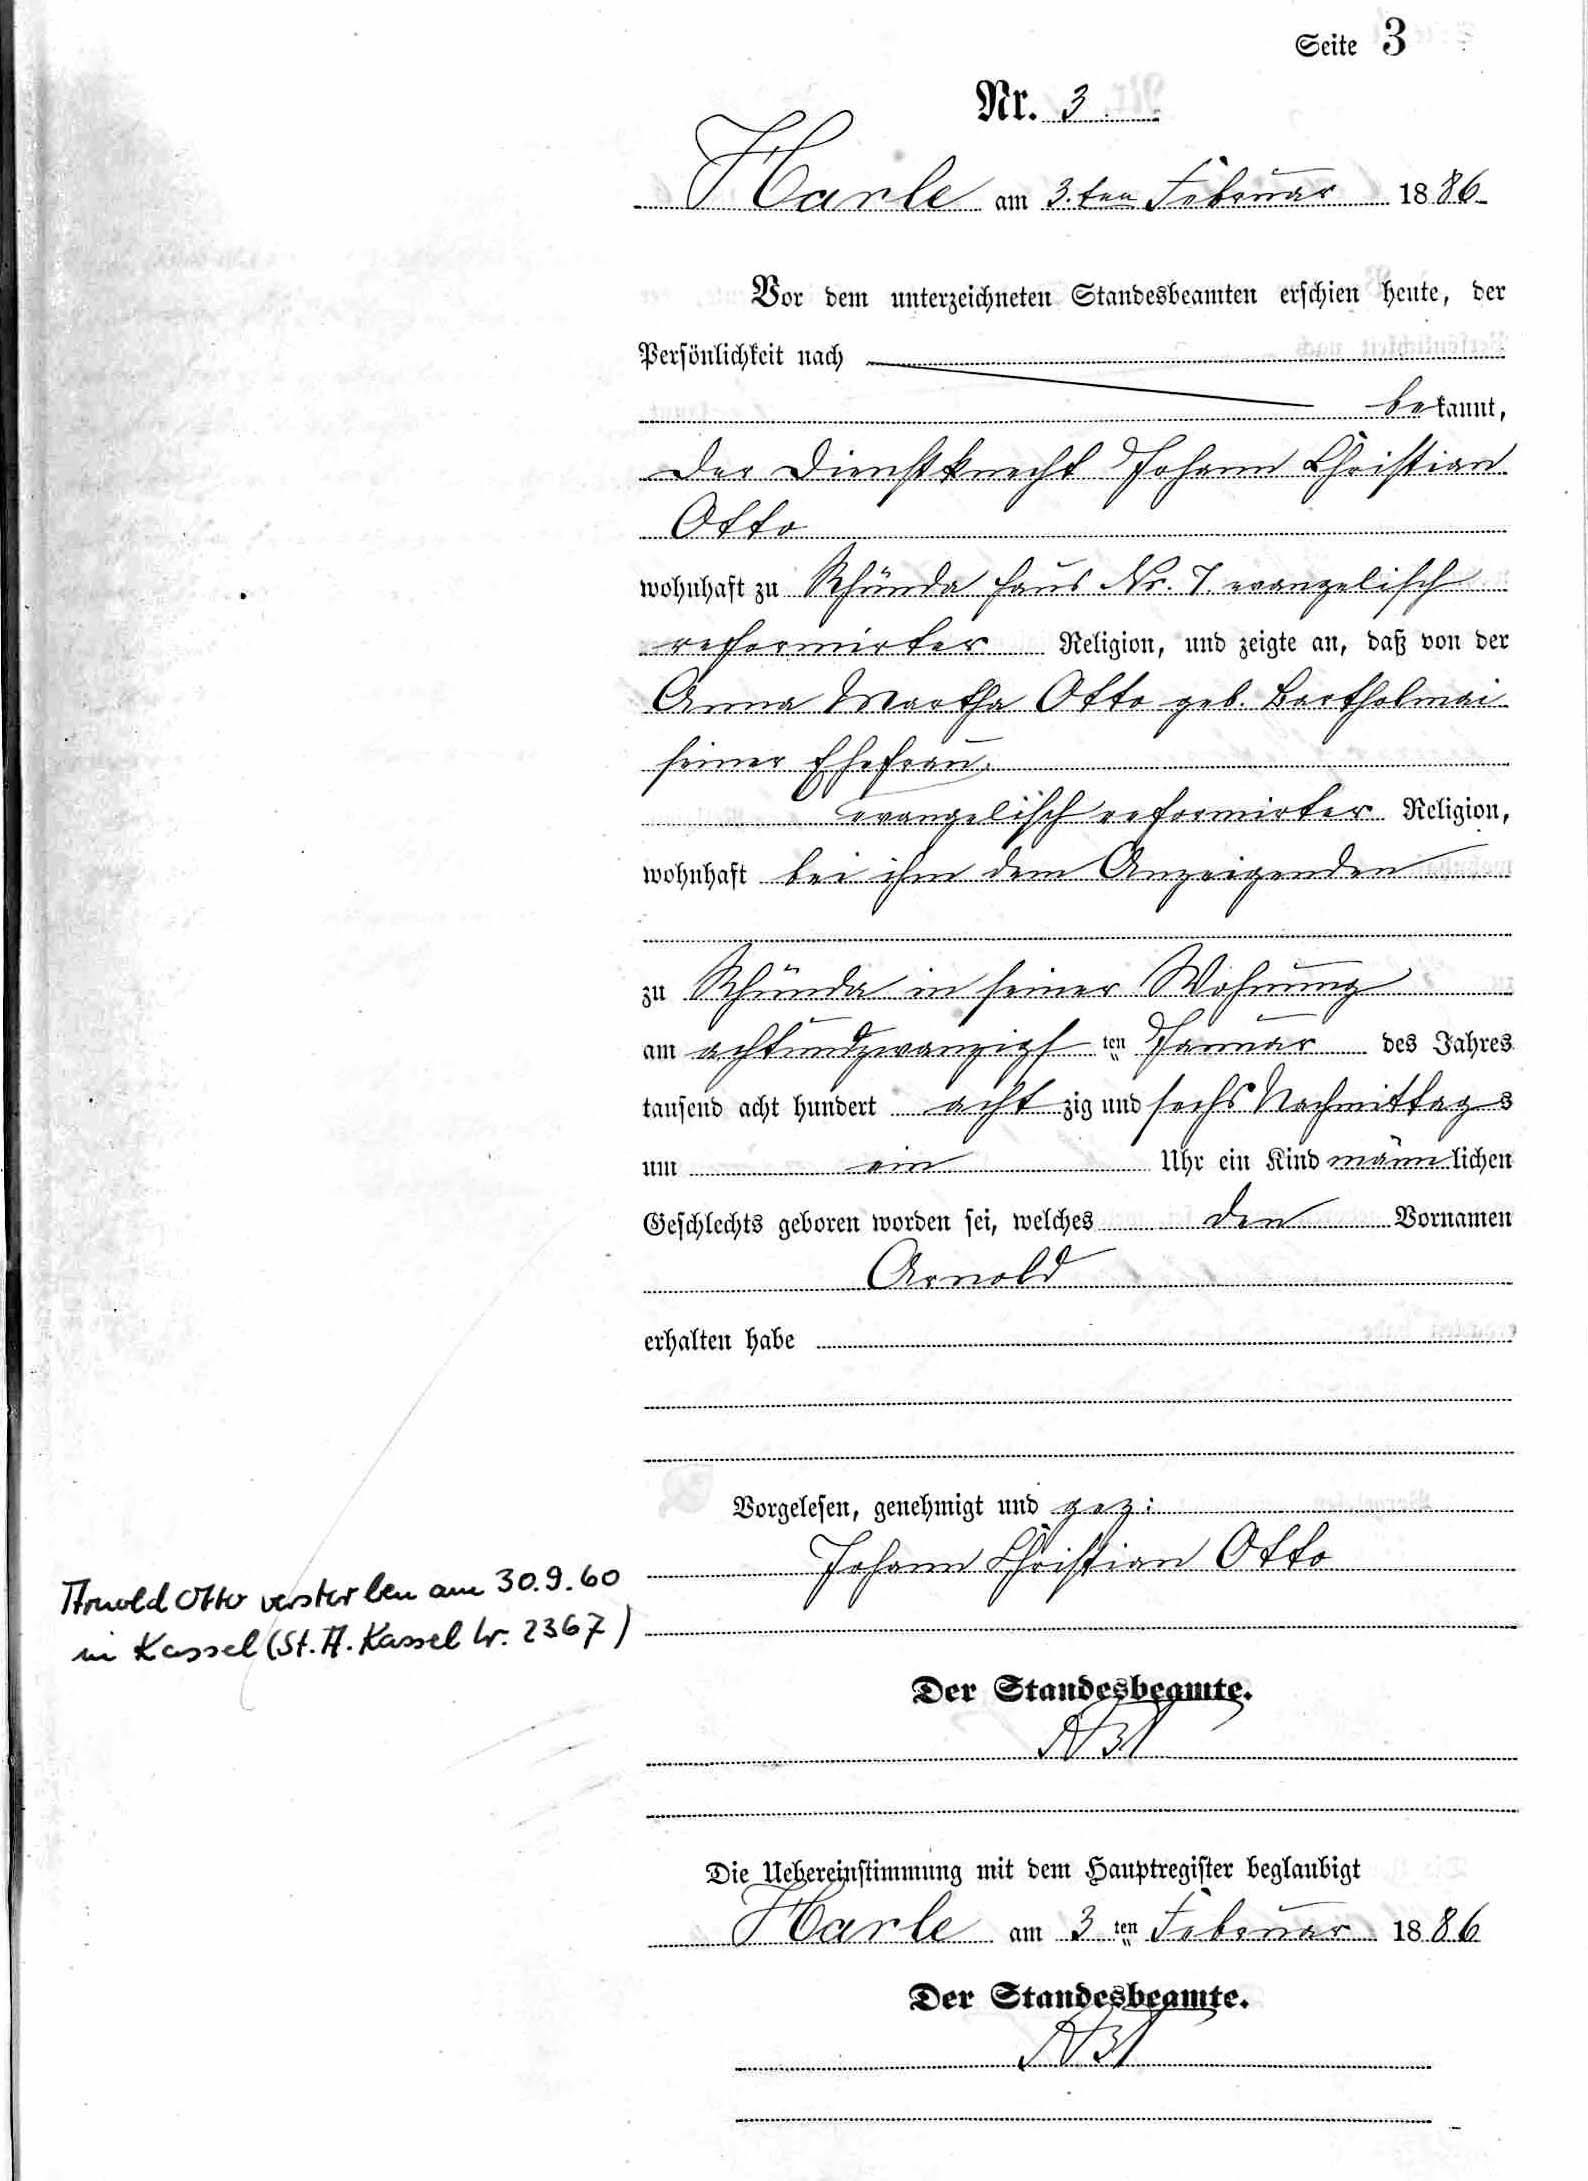 Seite 3
Nr. 3
Harle am 3. ten Februar 1886
Vor dem unterzeichneten Standesbeamten erschien heute, der
Persönlichkeit nach
bekannt,
der Dienstknecht Johann Christian
Otto
wohnhaft zu Rhünda Haus Nr. 7. evangelisch
reformirter Religion, und zeigte an, daß von der
Anna Martha Otto geb. Bartholmai
seiner Ehefrau,
evangelisch reformirter Religion,
wohnhaft bei ihm dem Anzeigenden
zu Rhünda in seiner Wohnung
am achtundzwanzigsten Januar des Jahres
tausend acht hundert achtzig und sechs Nachmittags
um ein Uhr ein Kind männlichen
Geschlechts geboren worden sei, welches den Vornamen
Arnold
erhalten habe
Vorgelesen, genehmigt und gez:
Johann Christian Otto
Arnold Otto verstorben am 30.9.60
in Kassel (St. A. Kassel Nr. 2367)
Der Standesbeamte.
Die Uebereinstimmung mit dem Hauptregister beglaubigt
Harle am 3 ten Februar 1886
Der Standesbeamte.